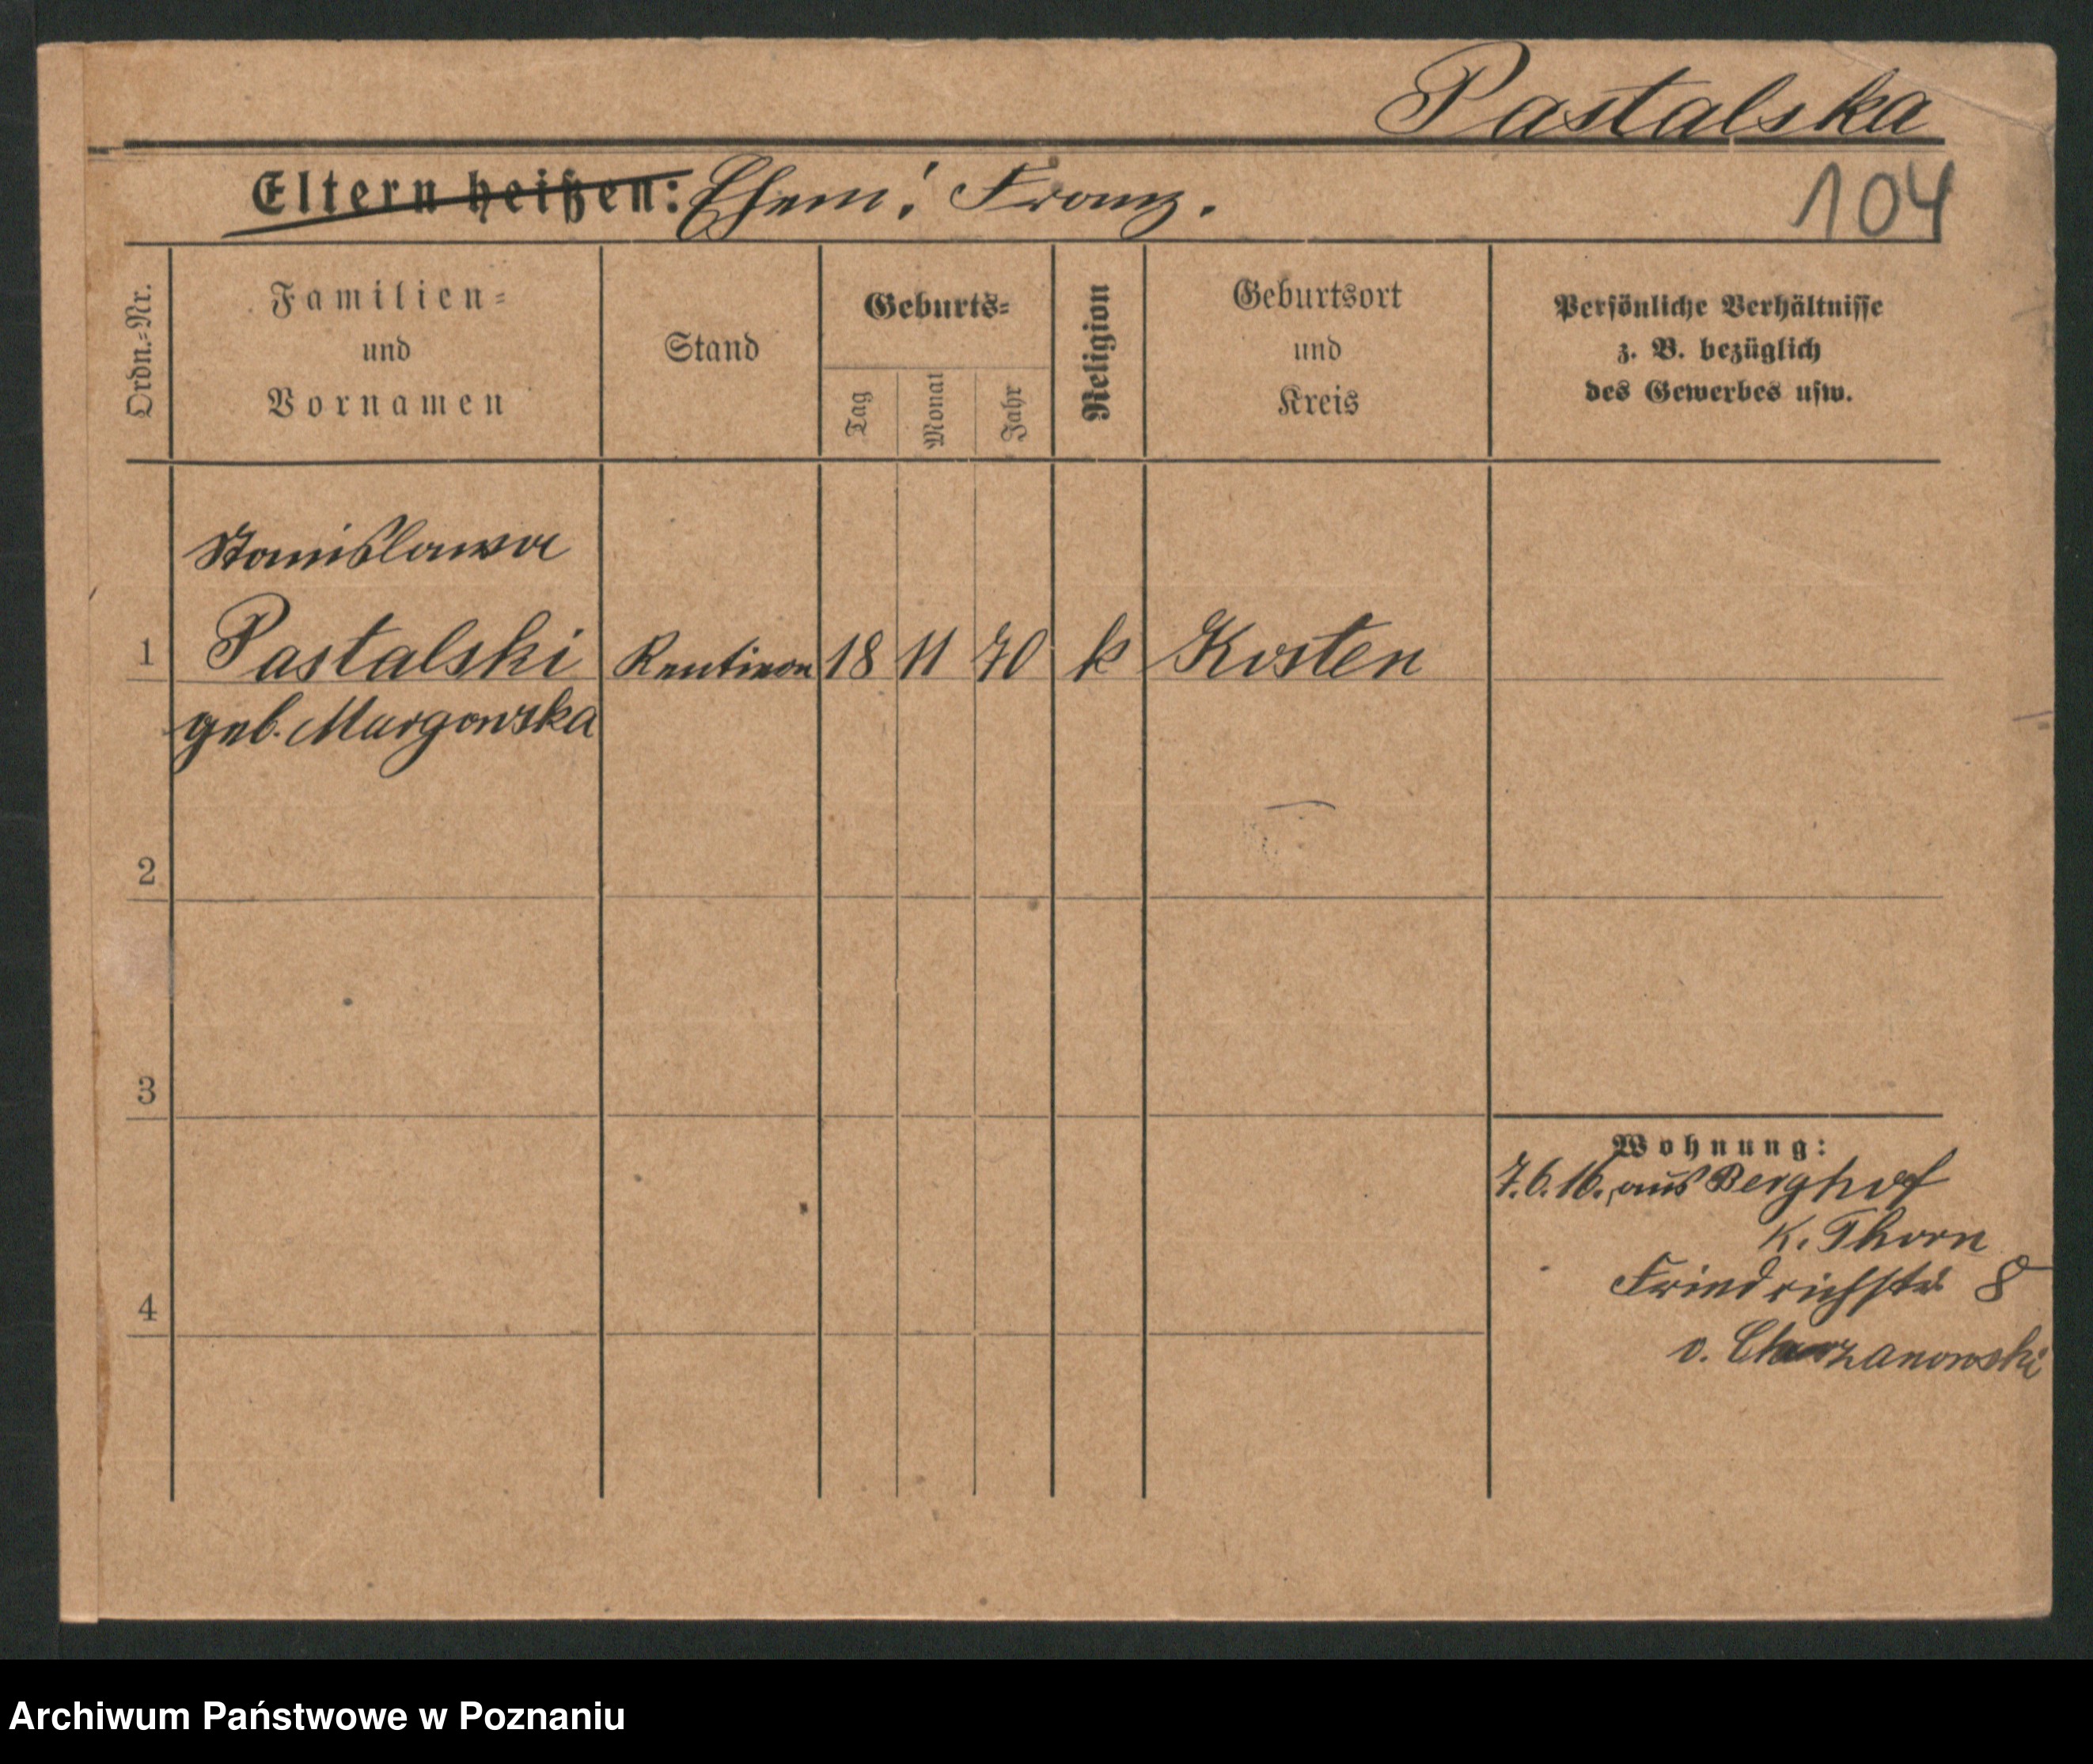 Pastalska
Eltern heißen: Ehem: Franz.
104
Ordn.-Nr.
Familien-
und
Vornamen
Stand
Geburts-
Tag
Monat
Jahr
Religion
Geburtsort
und
Kreis
Persönliche Verhältnisse
z. B. bezüglich
des Gewerbes usw.
Stanislawa
1 Pastalski Rentiere 18 11 70 k Kosten
geb. Murgowska
2
3
4
Wohnung:
7.6.16. aus Berghof
K. Thorn
Friedrichstr 8
v. Charzanowski
Archiwum Państwowe w Poznaniu